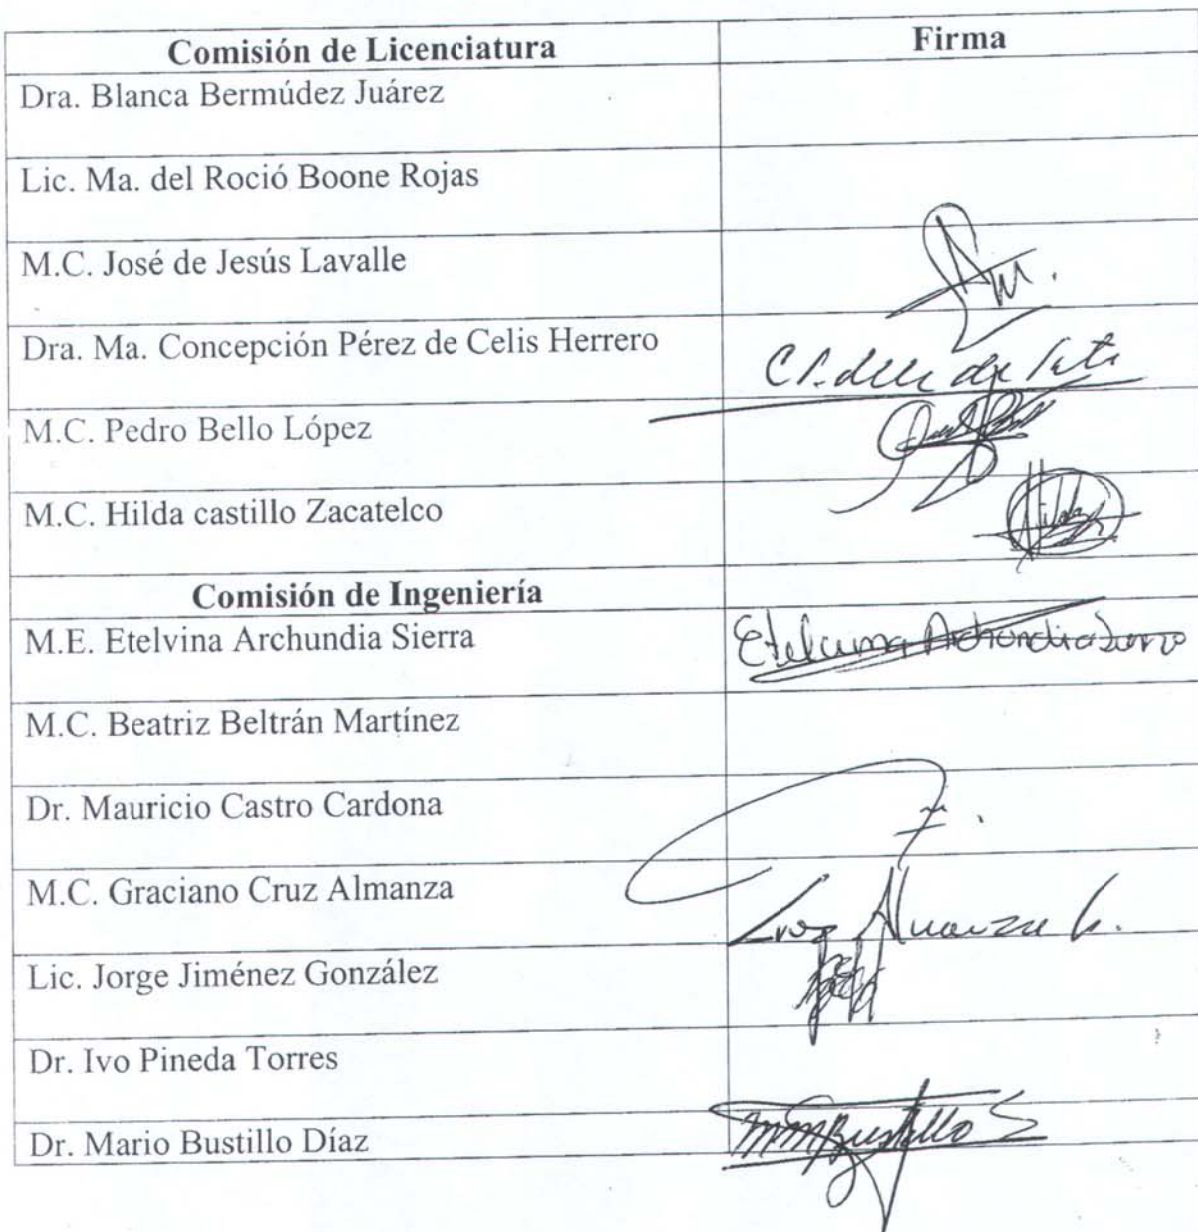 Comisión de Licenciatura Firma
Dra. Blanca Bermúdez Juárez
Lic. Ma. del Roció Boone Rojas
M.C. José de Jesús Lavalle
Dra. Ma. Concepción Pérez de Celis Herrero
M.C. Pedro Bello López
M.C. Hilda castillo Zacatelco Hilda
Comisión de Ingeniería
M.E. Etelvina Archundia Sierra Etelvina Archundia Sierra
M.C. Beatriz Beltrán Martínez
Dr. Mauricio Castro Cardona
M.C. Graciano Cruz Almanza Cruz Almanza G.
Lic. Jorge Jiménez González
Dr. Ivo Pineda Torres
Dr. Mario Bustillo Díaz MMBustillo